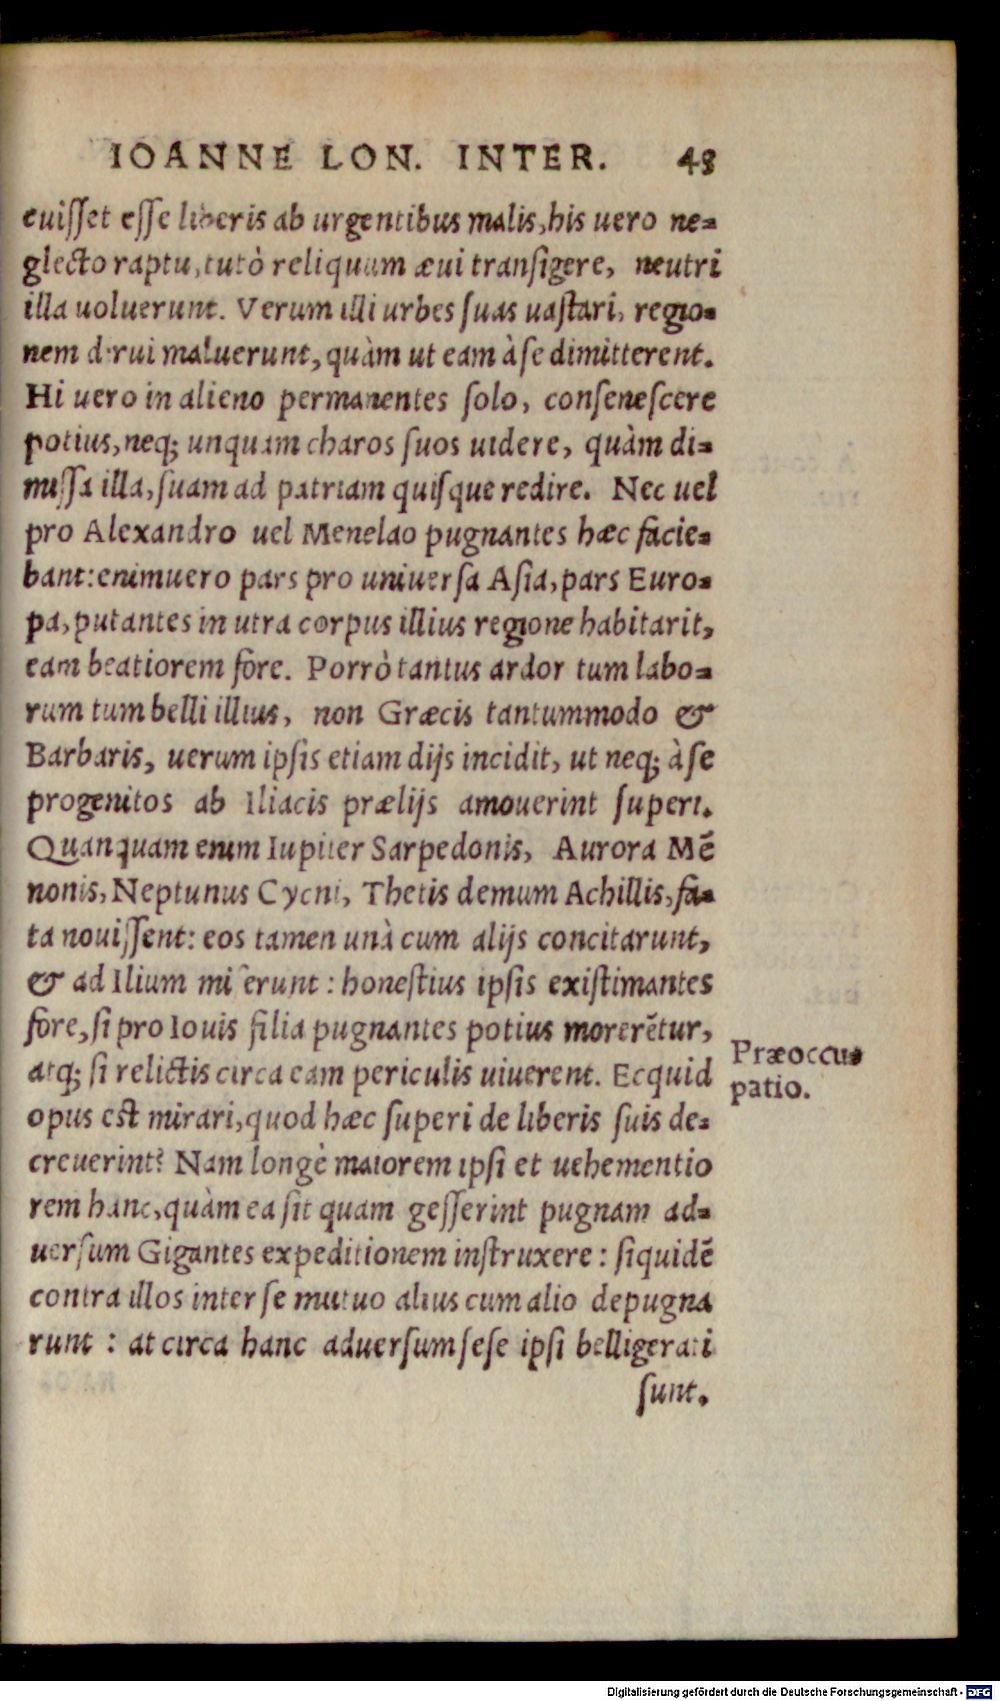 IOANNE LON. INTER. 48
euiſſet eſſe liberis ab urgentibus malis, his uero ne⸗
glecto raptu, tutò reliquum æui tranſigere, neutri
illa uoluerunt. Verum illi urbes ſuas uaſtari, regio⸗
nem dirui maluerunt, quàm ut eam à ſe dimitterent.
Hi uero in alieno permanentes ſolo, conſeneſcere
potius, neq; unquam charos ſuos uidere, quàm di⸗
miſſa illa, ſuam ad patriam quiſque redire. Nec uel
pro Alexandro uel Menelao pugnantes hæc facie⸗
bant: enimuero pars pro uniuerſa Aſia, pars Euro⸗
pa, putantes in utra corpus illius regione habitarit,
eam beatiorem fore. Porrò tantus ardor tum labo⸗
rum tum belli illius, non Græcis tantummodo &
Barbaris, uerum ipſis etiam dijs incidit, ut neq; à ſe
progenitos ab Iliacis prælijs amouerint ſuperi.
Quanquam enim Iupiter Sarpedonis, Aurora Mē
nonis, Neptunus Cycni, Thetis demum Achillis, fa⸗
ta nouiſſent: eos tamen unà cum alijs concitarunt,
& ad Ilium miſerunt: honeſtius ipſis exiſtimantes
fore, ſi pro Iouis filia pugnantes potius morerētur,
atq; ſi relictis circa eam periculis uiuerent. Ecquid
opus eſt mirari, quod hæc ſuperi de liberis ſuis de⸗
creuerint? Nam longè maiorem ipſi et uehementio
rem hanc, quàm ea ſit quam geſſerint pugnam ad⸗
uerſum Gigantes expeditionem inſtruxere: ſiquidē
contra illos inter ſe mutuo alius cum alio depugna
runt: at circa hanc aduerſum ſeſe ipſi belligerati
ſunt.
Præoccu⸗
patio.
Digitalisierung gefördert durch die Deutsche Forschungsgemeinschaft - DFG